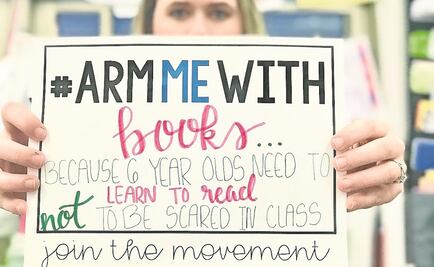 #ARMMEWITH
books...
BECAUSE 6 YEAR OLDS NEED TO
LEARN TO read
not TO BE SCARED IN CLASS
join the movement